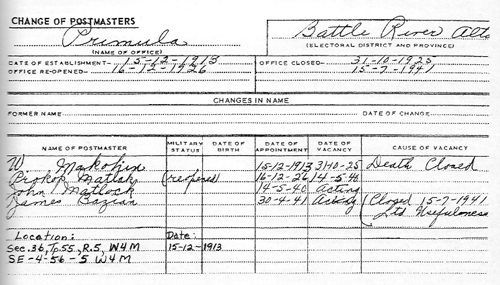 CHANGE OF POSTMASTERS
Primula Battle River Alta
(NAME OF OFFICE) (ELECTORAL DISTRICT AND PROVINCE)
DATE OF ESTABLISHMENT- 15-12-1913 OFFICE CLOSED- 31-10-1925
OFFICE RE-OPENED- 16-12-1926 15-7-1941
CHANGES IN NAME
FORMER NAME DATE OF CHANGE
NAME OF POSTMASTER MILITARY STATUS DATE OF BIRTH DATE OF APPOINTMENT DATE OF VACANCY CAUSE OF VACANCY
W 15-12-1913 31-10-25 Death Closed
Prokop Matlak (reopened) 16-12-26 14-5-40
John Matlock 14-5-40 Acting
James 30-4-41 Acting (Closed 15-7-1941
Ltd Usefulness
Location: Date:
Sec.36, Tp.55, R.5, W4M 15-12-1913
SE-4-56-5 W4M